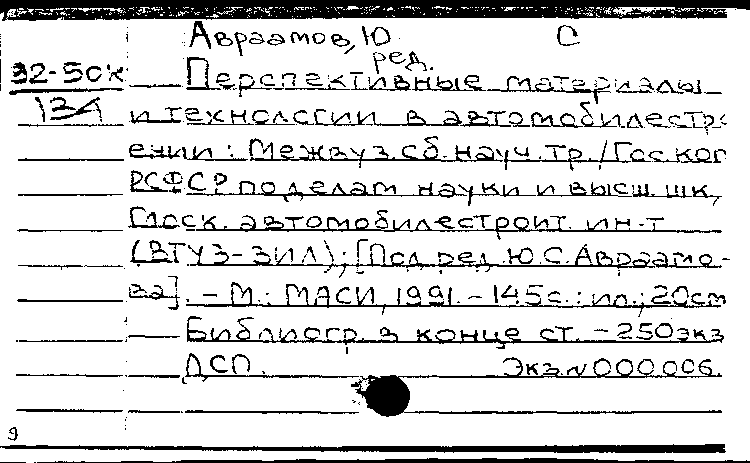 Авраамов, Ю С
ред.
92-50к Перспективные материалы
134 и технологии в автомобилестро
ении: Межвуз. сб. науч. тр. / Гос. ком
РСФСР по делам науки и высш. шк,
Моск. автомобилестроит. ин-т
(ВТУЗ-ЗИЛ); [Под ред. Ю.С. Авраамо-
ва]. - М.: МАСИ, 1991. - 145с.: ил.; 20см
Библиогр. в конце ст. - 250экз
ДСП. Экз. № 000006.
9